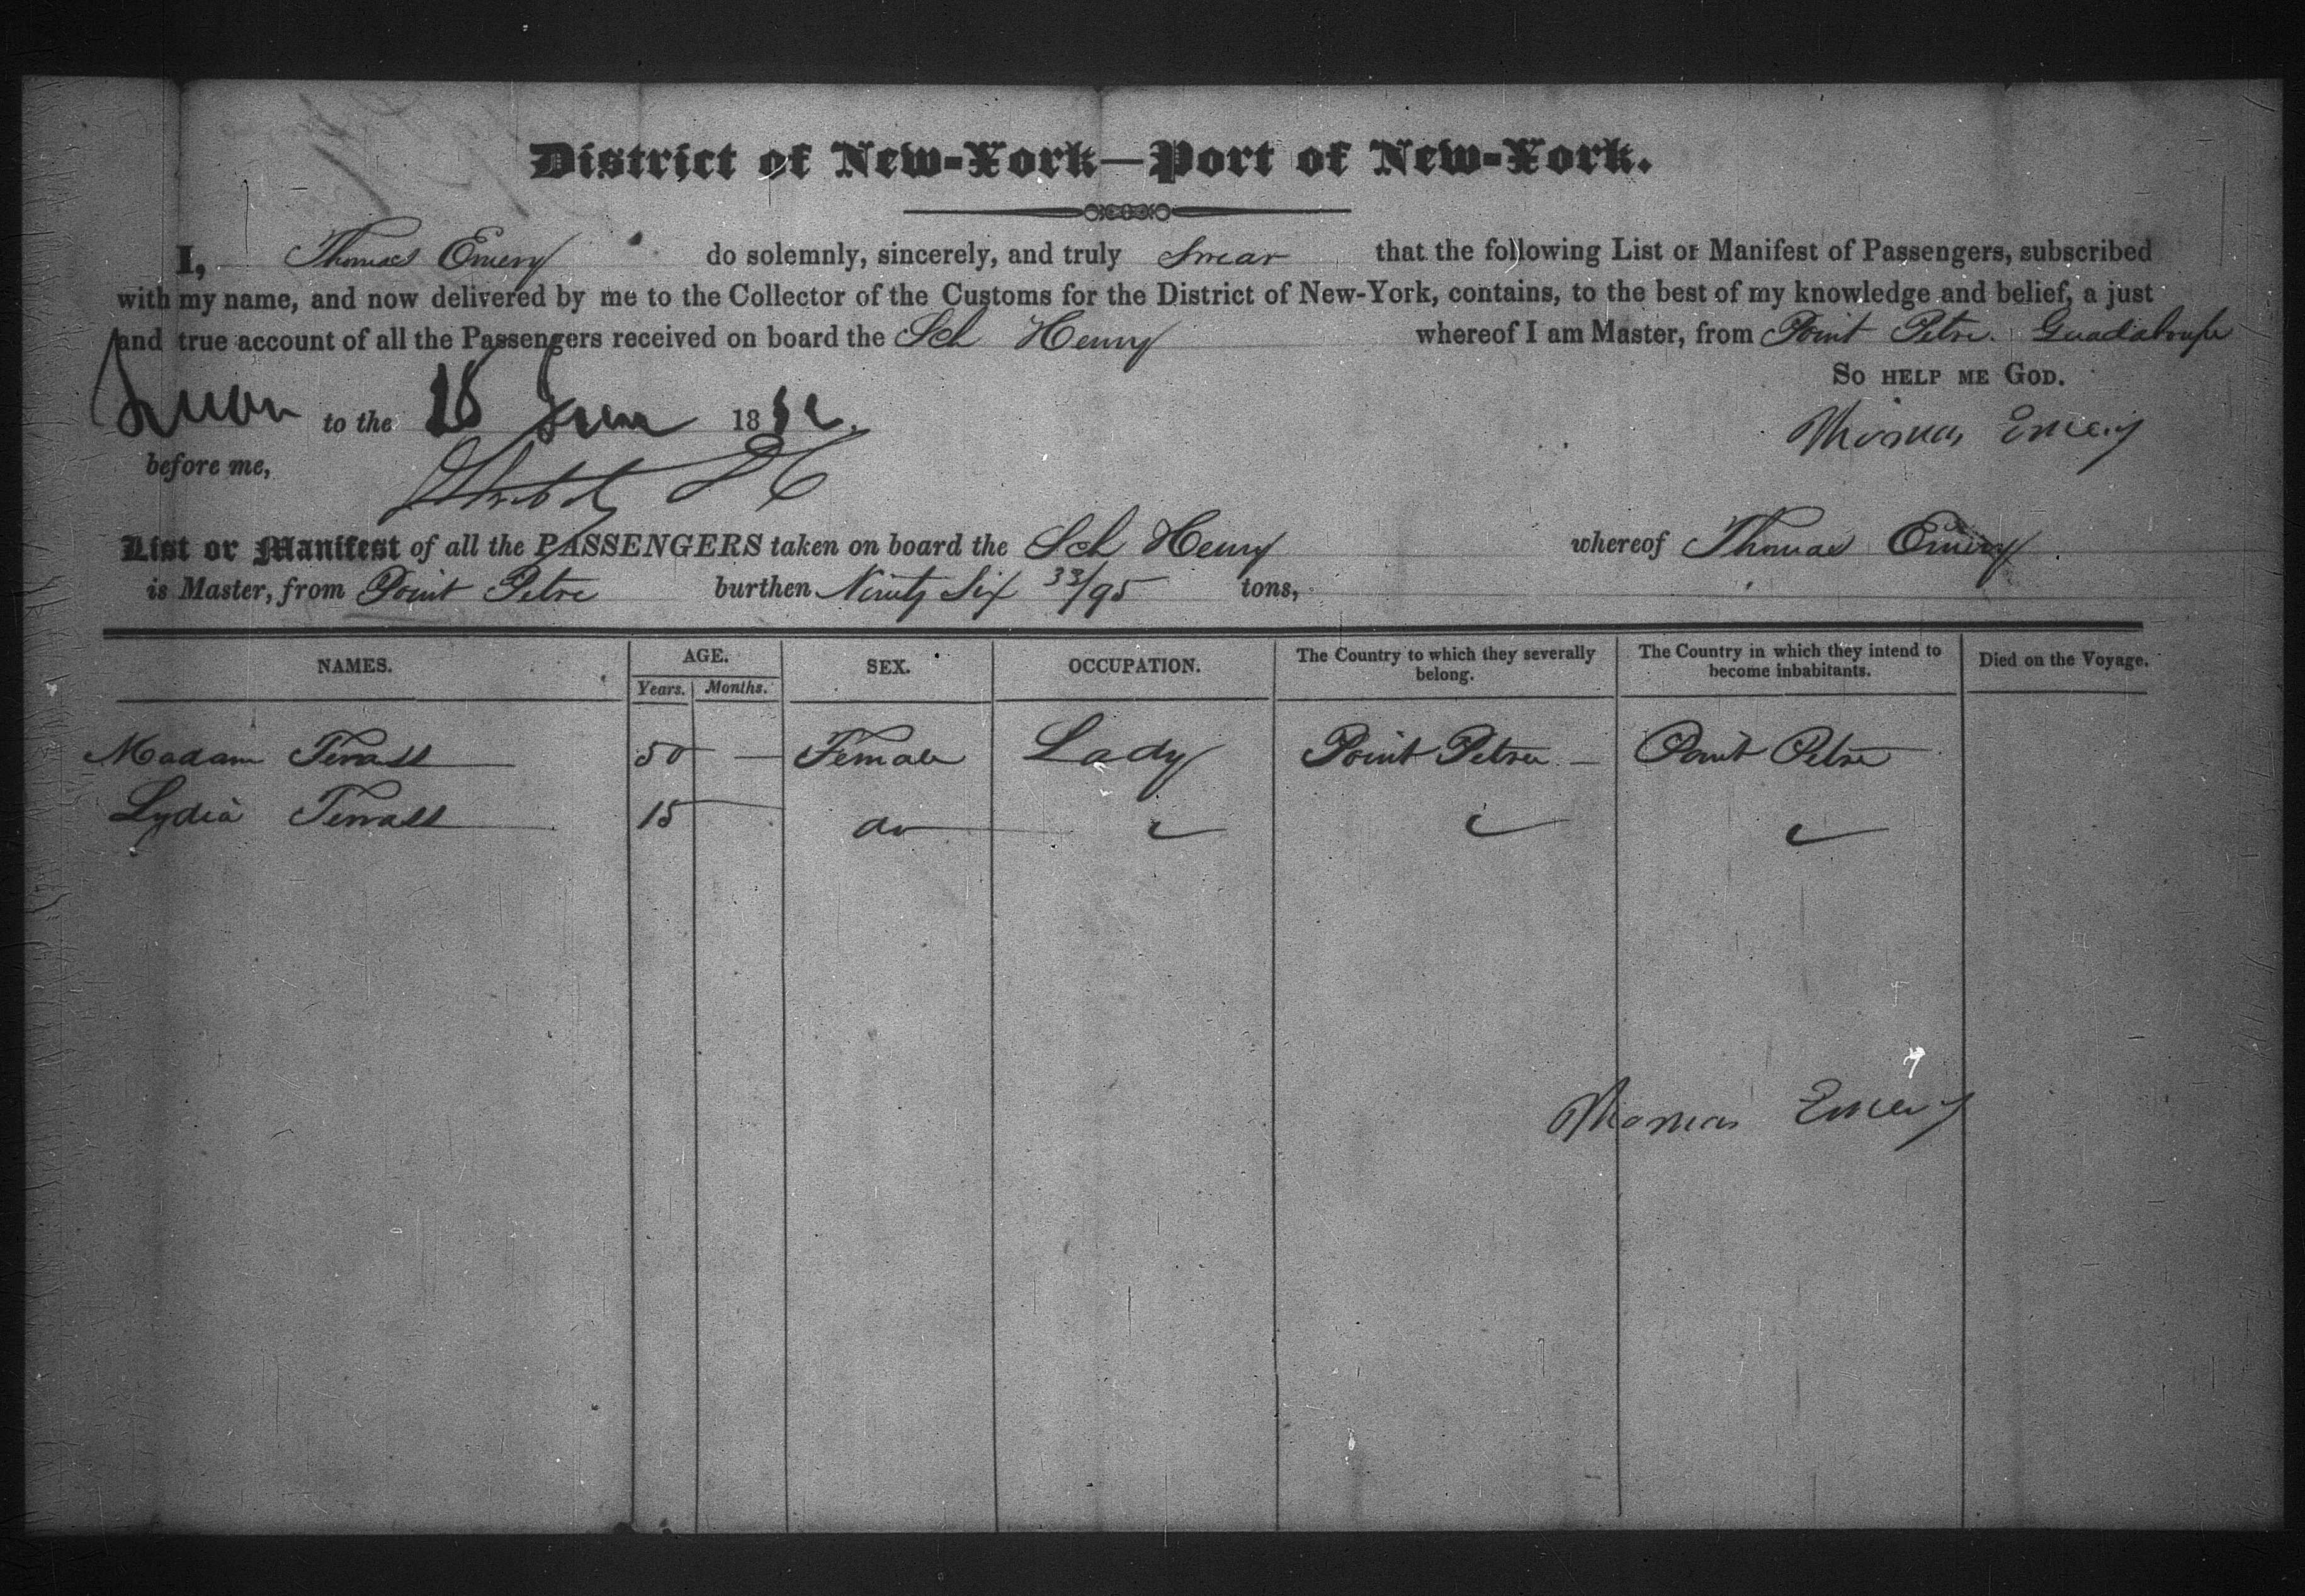 District of New-York—Port of New-York.
I, Thomas Emery do solemnly, sincerely, and truly Swear that the following List or Manifest of Passengers, subscribed
with my name, and now delivered by me to the Collector of the Customs for the District of New-York, contains, to the best of my knowledge and belief, a just
and true account of all the Passengers received on board the Sch Henry whereof I am Master, from Point Petre. Guadaloupe
So help me God.
Sworn to the 18 June 18
Thomas Emery
before me,
List or Manifest of all the PASSENGERS taken on board the Sch Henry whereof Thomas Emery
is Master, from Point Petre burthen Ninety Six 33/95 tons,
NAMES. AGE. SEX. OCCUPATION. The Country to which they severally belong. The Country in which they intend to become inhabitants. Died on the Voyage.
Years. Months.
Madam 50 — Female Lady Point Petre — Point Petre
Lydia 15 do
Thomas Emery